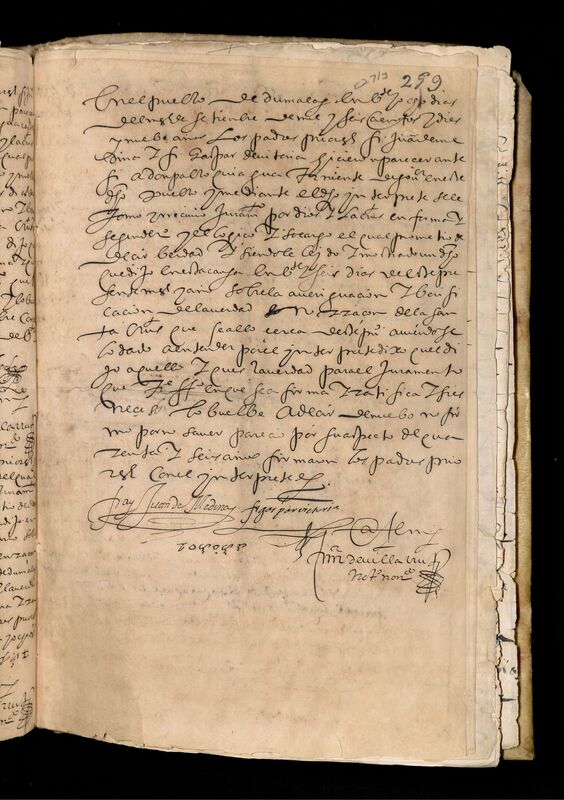 299
En el pueblo de dumalag en b^te y ocho dias
del mes de setienbre de mil y seiscientos y dies
y nuebe años Los padres prior fr Juan de me
dina y fr gaspar de vitoria hicieron parecer ante
si a don pablo teniente de gor en este
dho pueblo y mediante el dho ynterprete se le
tomo y recivio Juramto por dios y la cruz en forma y
segun der y el lo hiço y so cargo el qual prometio de
deçir berdad y siendole leydo y mostrado un dho
que dijo en esta causa en b^te y seis dias de este pre
sente mes y año sobre la averiguacion y berifi
cacion de la verdad en raçon de la san
ta cruz que se allo cerca deste pu aviendose
lo dado a entender por el ynterprete dixo que el di
jo aquello y que es la verdad para el Juramento
que tie ffo en que se afirma y ratifica y si es
neceso lo buelbe a deçir de nuebo no fir
mo por no saver pareçio por su aspecto de qua
renta y seis años firmaron los padres prio
res con el ynterprete
fray Juan de Medina fr gaspar vitoria
de villarruz
noto nomdo